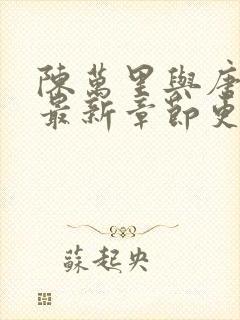 陳萬里與唐
最新章節更
蘇起央